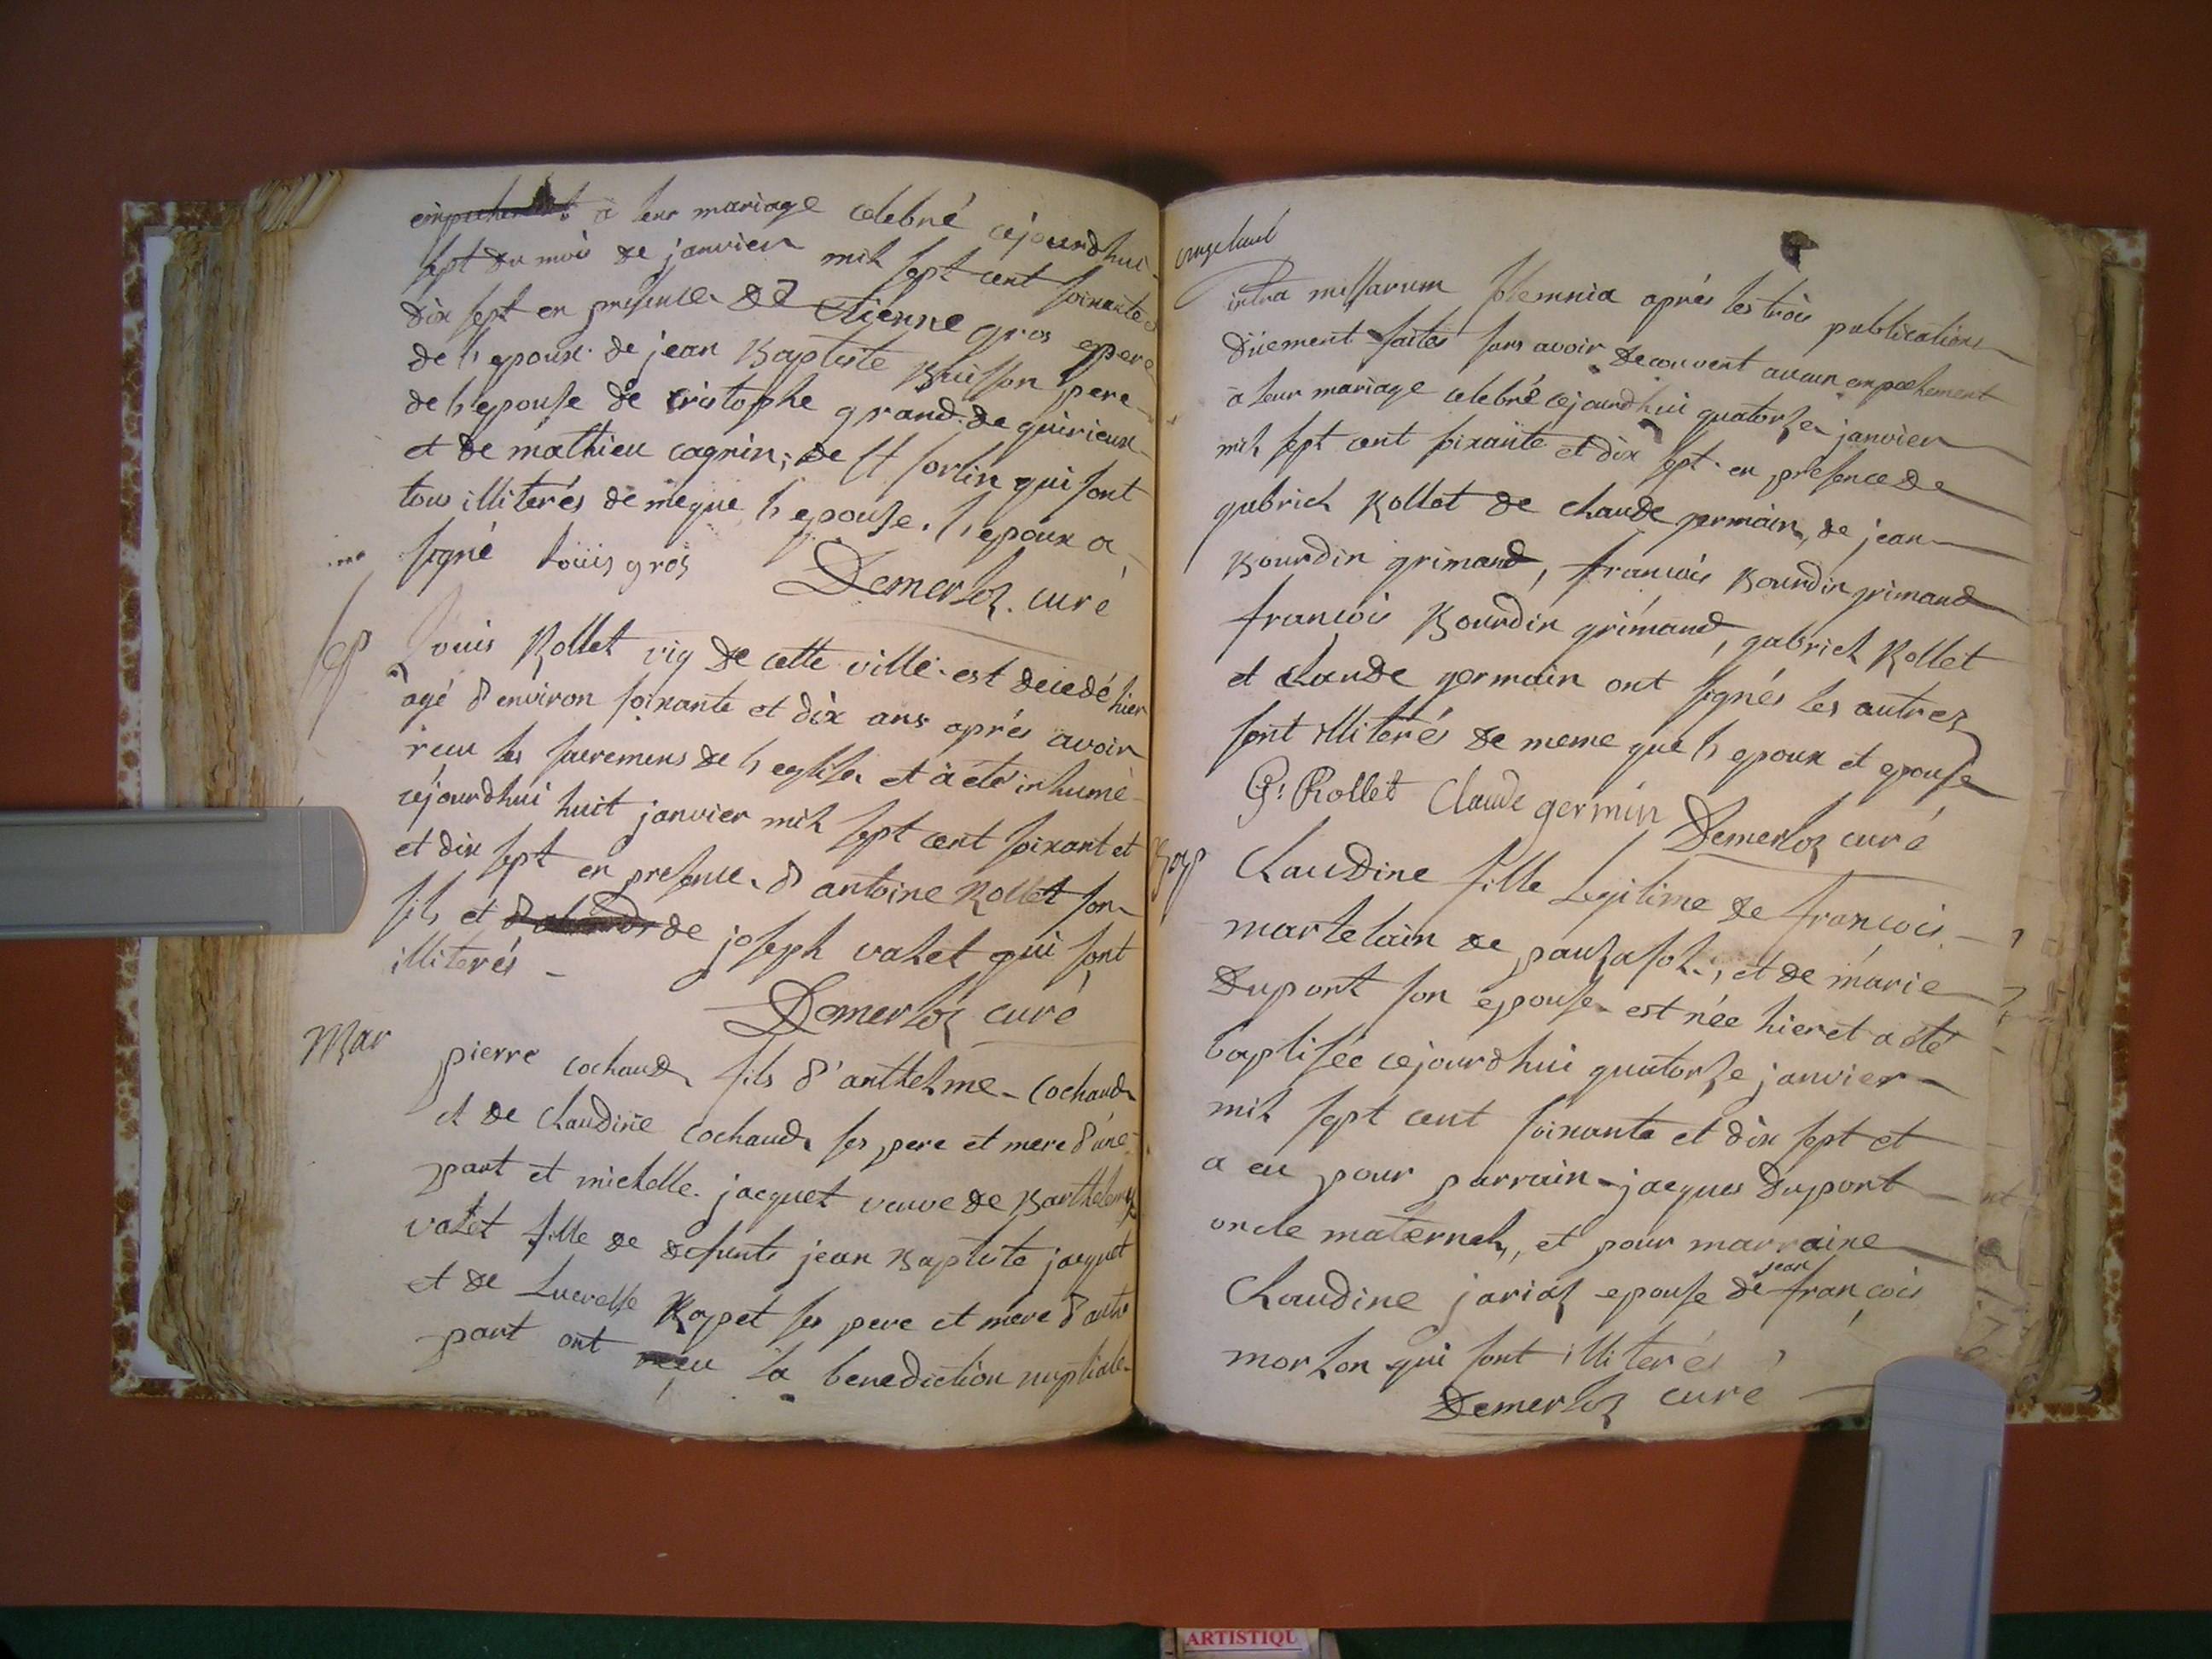 à leur mariage celebré cejourdhui
sept du mois de janvier mil sept cent soixante
dix sept en presence de Etienne gros pere
de l epoux de jean Baptiste Buisson pere
de l epouse de cristophe grand de quirieux
et de mathieu cagnin, de St sorlin qui sont
tous illiterés de meque l epouse. l epoux a
signé Loüis gros Demerloz curé
Sep
Louis Rollet vig de cette ville est decedé hier
agé d environ soixante et dix ans aprés avoir
recu les sacremens de l eglise et a été inhumé
cejourdhui huit janvier mil sept cent soixant et
et dix sept en presence d antoine Rollet son
fils et de joseph valet qui sont
illiterés
Demerloz curé
Mar
pierre cochaud fils d'anthelme Cochaud
et de claudine cochaud ses pere et mere d'une
part et michelle jacquet veuve de Barthelemy
valet fille de defunts jean Baptiste jacquet
et de Lucresse Rapet ses pere et mere d autre
part ont reçu la benediction nuptiale
intra missarum solemnia aprés les trois publications
düement faites sans avoir decouvert aucun empechement
à leur mariage celebré cejourdhui quatorse janvier
mil sept cent soixante et dix sept en presence de
gabriel Rollet de claude germain, de jean
Bourdin grimaud, francois Bourdin grimaud
francois Bourdin grimaud, gabriel Rollet
et claude germain ont signés les autres
sont illiterés de meme que l epoux et epouse
G: Rollet Claude germin Demerloz curé
Bap
Claudine fille Legitime de francois
martelain de pausasol, et de marie
Dupont son epouse est née hier et a été
baptisée cejourdhui quatorse janvier
mil sept cent soixante et dix sept et
a eu pour parrain jacques Dupont
oncle maternel, et pour marraine
Claudine jarias epouse de jean françois
morlon qui sont illiterés
Demerloz curé
ARTISTIQU